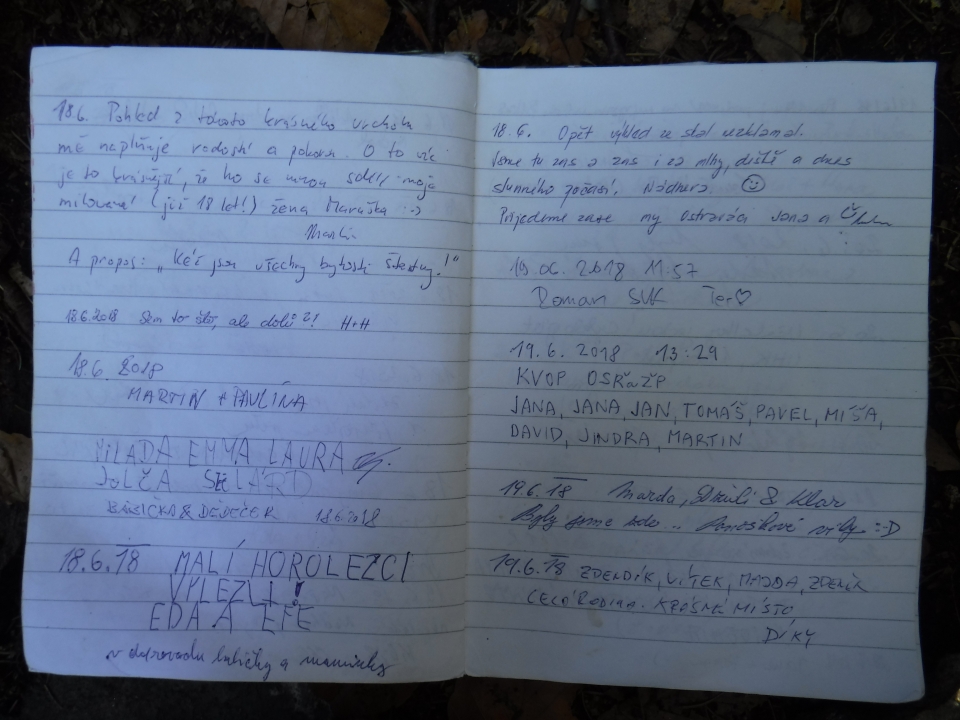 18.6. Pohled z tohoto krásného vrcholu
mě naplňuje radostí a pokorou. O to víc
je to krásnější, že ho se mnou sdílí moje
milovaná (již 18 let!) žena Maruška :-)
Martin
A propos: „Kéž jsou všechny bytosti šťastny!"
18.6.2018 Sem to šlo, ale dolů?! H+H
18.6. 2018
MARTIN + PAVLÍNA
MILADA EMMA LAURA
JOLČA
BABIČKA & DĚDEČEK 18.6.2018
18.6.18 MALÍ HOROLEZCI
VYLEZLI!
EDA A EFE
v doprovodu babičky a maminky
18.6. Opět výhled ze skal nezklamal.
Jsme tu zas a zas i za mlhy, deště a dnes
slunného počasí. Nádhera ☺
Přijedeme zase my Ostraváci Jana a
19.06.2018 11.57
Roman SUK Ter♡
19.6.2018 13:29
KVOP OSŘaŽP
JANA, JANA, JAN, TOMÁŠ, PAVEL, MÍŠA,
DAVID, JINDRA, MARTIN
19.6.18 Marda, & Klar
Byly jsme zde .. víly =:D
19.6.18 ZDENDÍK, VÍTEK, MAGDA, ZDENÍK
CELÁ RODINA. KRÁSNÉ MÍSTO
DÍKY